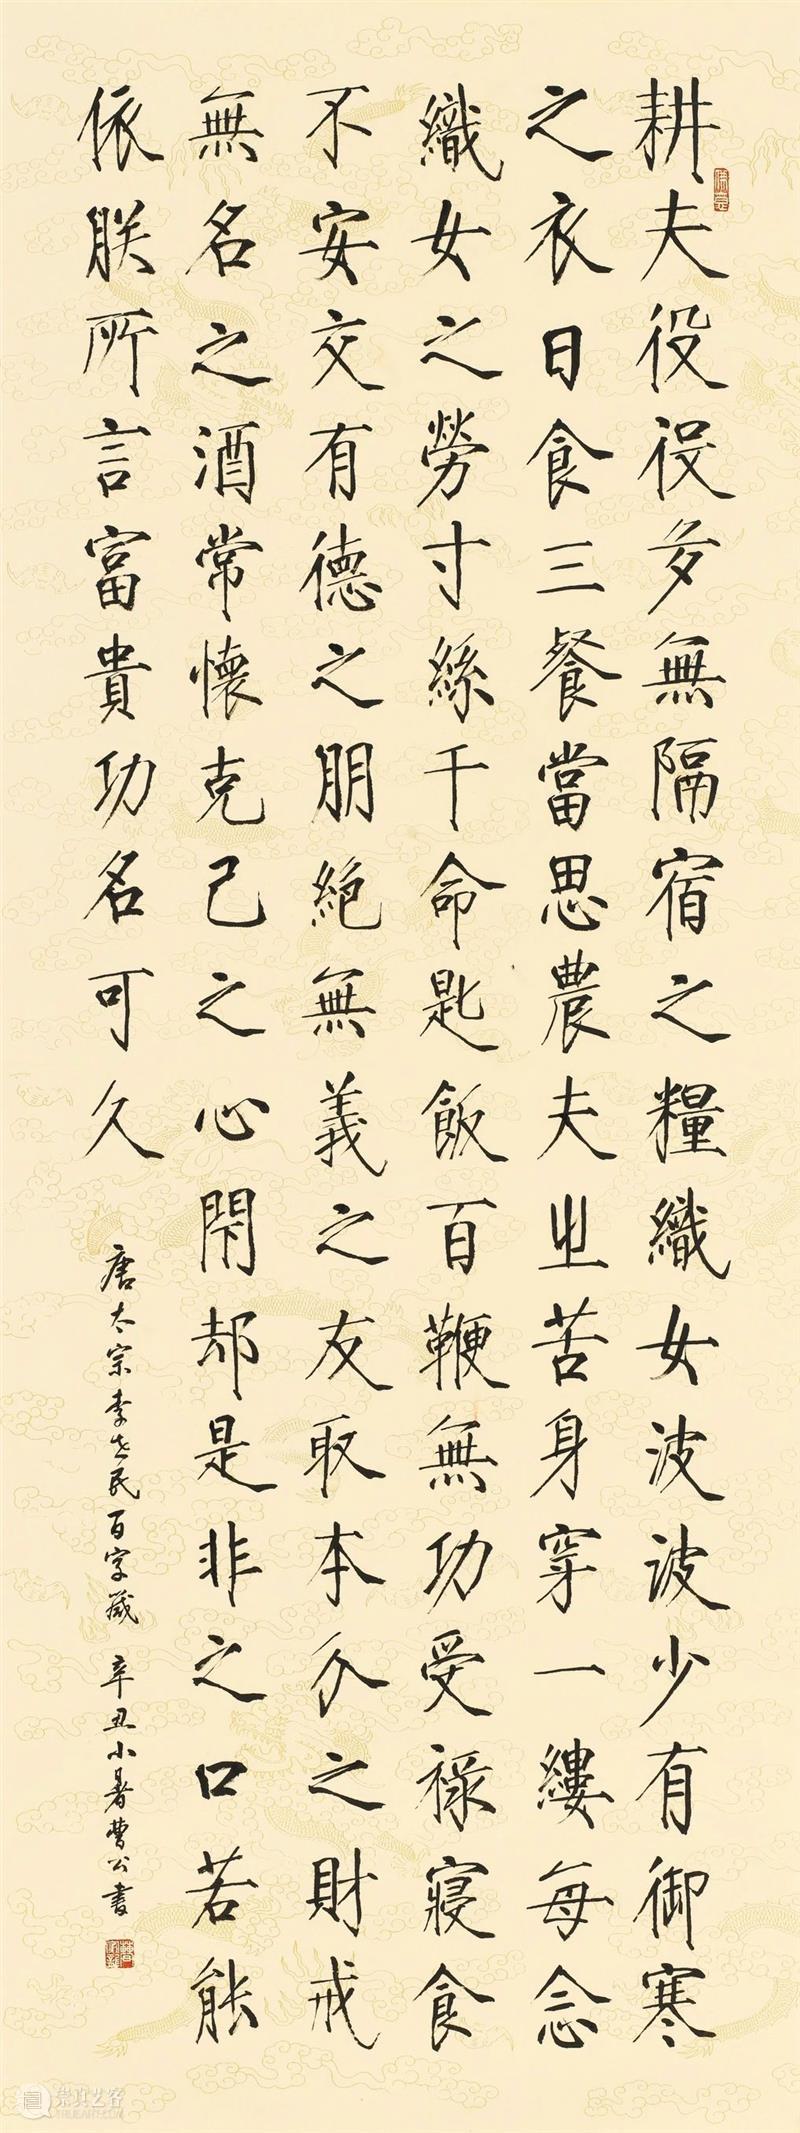 耕夫役役多無隔宿之糧織女波波少有御寒
之衣日食三餐當思農夫之苦身穿一縷每念
織女之勞寸絲千命匙飯百鞭無功受祿寢食
不安交有德之朋絶無義之友取本分之財戒
無名之酒常懷克己之心閇却是非之口若能
依朕所言富貴功名可久
唐太宗李世民百字箴 辛丑小暑曹公書
崇真艺客
TRUEART.COM